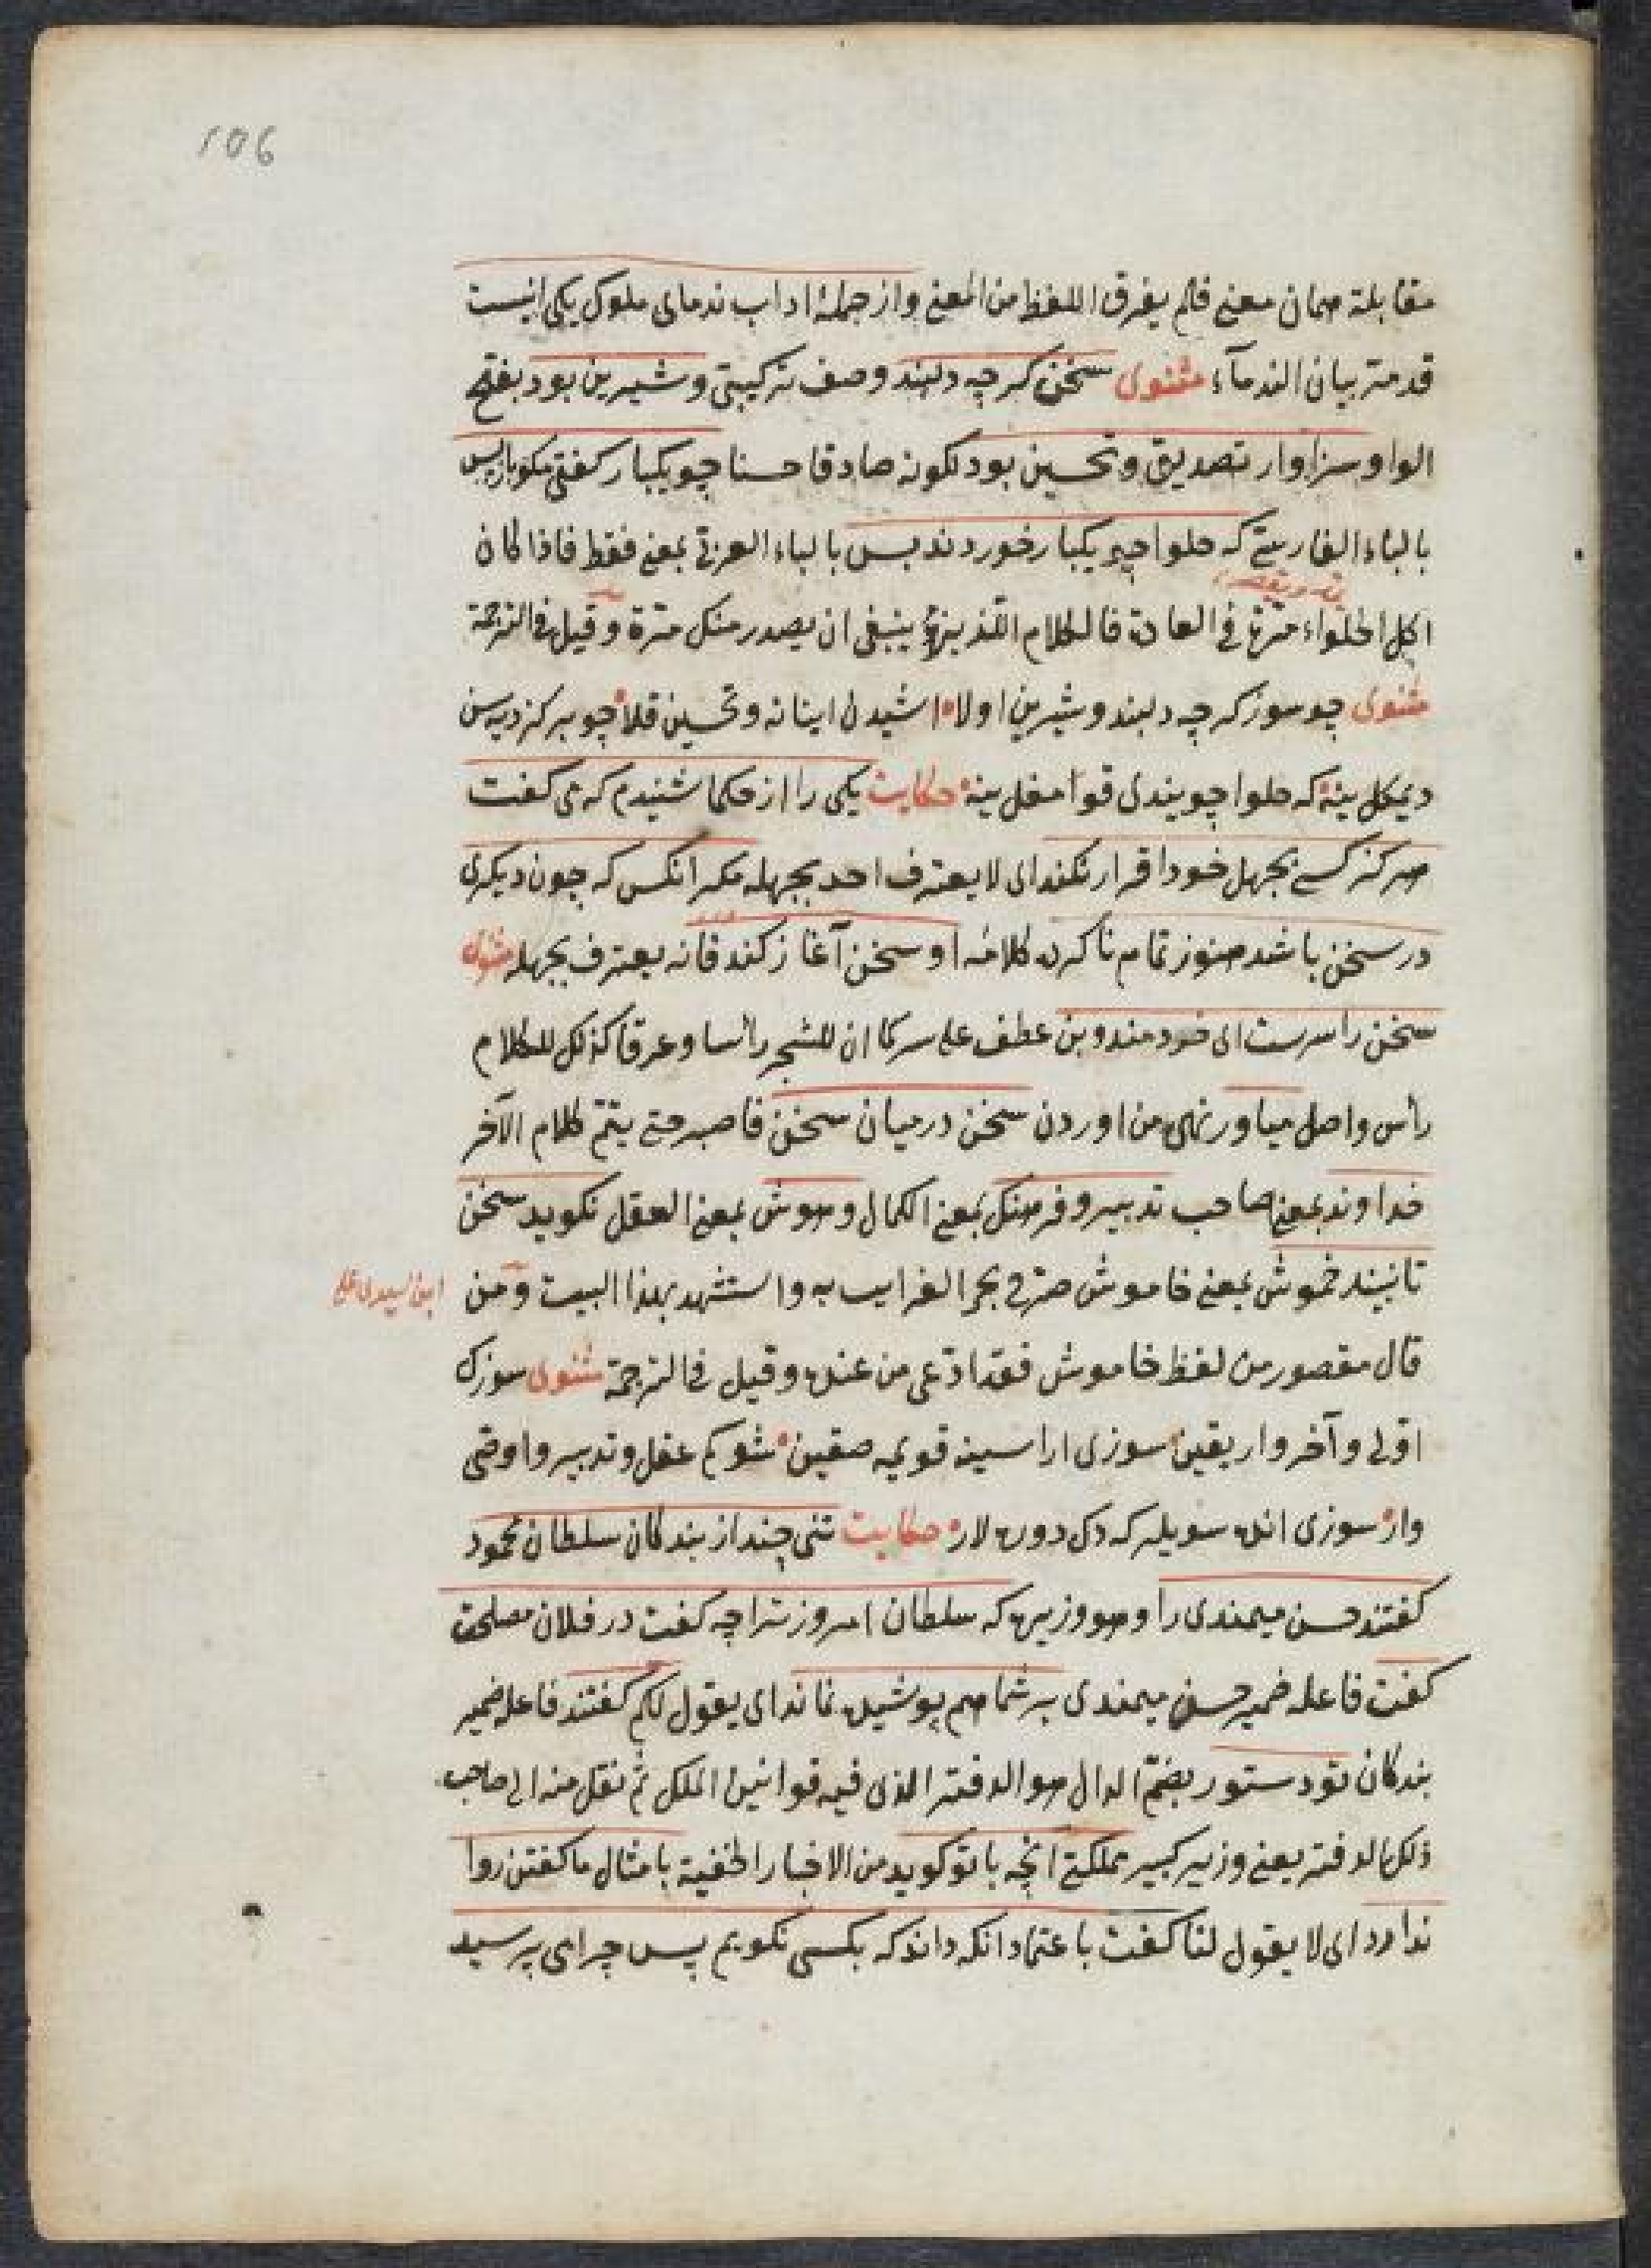 106
مقابلة همان معنى فلم يفرق اللفظ من المعنى واز جملهٔ اداب ندماى ملوك يكى اينست
قد مرّ بيان الندمآء مثنوى سخن كرچه دلبند وصف تركيبىّ وشيرين بود بفتح
الواو سزاوار تصديق وتحسين بود لكونه صادقا حسنا چو يكبار كفتى مكو باز پس
بالباء الفارسىّ كه حلوا چو يكبار خوردند بس بالباء العربىّ بمعنى فقط فاذا كان
اكل الحلواء مرّة فى العادة فالكلام اللذيذ ينبغى ان يصدر منك مرّة وقيل فى الترجمة
مثنوى چو سوز كرچه دلبند وشيرين اولا اشيدن اينانه وتحسين قلا چو بر كز ديه سن
ديمكل ينه كه حلوا چو يندى قوامغل ينه حكايت يكى را از حكما شنيدم كه مى كفت
هركز كسى بجهل خود اقرار نكند اى لا يعترف احد بجهله مكر انكس كه چون ديكرى
در سخن باشد هنوز تمام ناكرده كلامه او سخن آغاز كند فانه يعترف بجهله مثنوى
سخن را سرست اى خردمند وبن عطف على سر كما ان للشجر رأسا وعرقا كذلك للكلام
رأس واصل مياور نهى من اوردن سخن در ميان سخن فاصبر حتى يتم كلام الآخر
خداوند بمعنى صاحب تدبير وفرهنك بمعنى الكمال وهوش بمعنى العقل نكويد سخن
تا نبيند خموش بمعنى خاموش صرّح فى بحر الغرايب به واستشهد بهذا البيت ومن
ابن السيد على
قال مقصور من لفظ خاموش فقد ادّعى من عنده وقيل فى الترجمة مثنوى سوزك
اوّلى وآخر وار يقين سوزى ارا سينه قويمه صقين شو كم عقل وتدبير واوضى
وار سوزى انده سويلر كه دك دورەلار حكايت تنى چند از بندكان سلطان محمود
كفتند حسن ميمندى را وهو وزيره كه سلطان امروز ترا چه كفت در فلان مصلحت
كفت فاعله ضمير حسن ميمندى بر شما هم پوشيده نماند اى يقول لكم كفتند فاعله ضمير
بندكان تو دستور بضمّ الدال هو الدفتر الذى فيه قوانين الملك ثم نقل منه الى صاحب
ذلك الدفتر يعنى وزير كبير مملكتى انچه با تو كويد من الاخبار الخفية با مثال ما كفتن روا
ندارد اى لا يقول لنا كفت باعتماد انكه داند كه بكسى نكويم پس چراى پرسيد